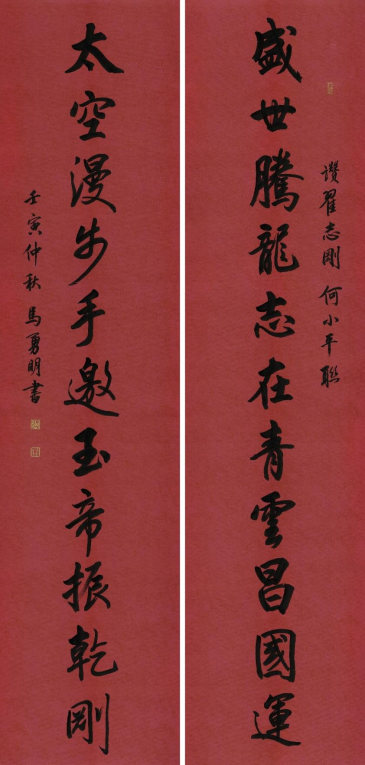 盛世騰龍志在青雲昌國運
讚翟志剛 何小平聯
太空漫步手邀玉帝振乾剛
壬寅仲秋 馬勇明書